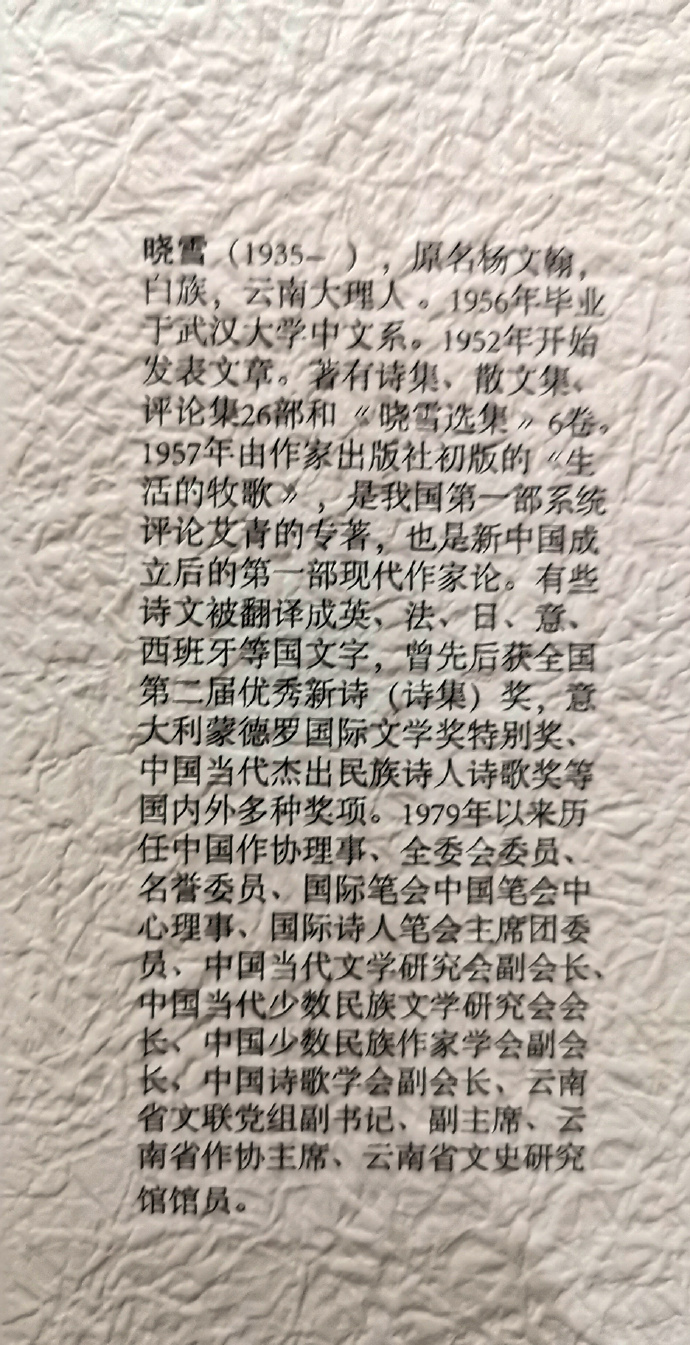 晓雪（1935- ），原名杨文翰，
白族，云南大理人。1956年毕业
于武汉大学中文系。1952年开始
发表文章。著有诗集、散文集、
评论集26部和《晓雪选集》6卷。
1957年由作家出版社初版的《生
活的牧歌》，是我国第一部系统
评论艾青的专著，也是新中国成
立后的第一部现代作家论。有些
诗文被翻译成英、法、日、意、
西班牙等国文字，曾先后获全国
第二届优秀新诗（诗集）奖，意
大利蒙德罗国际文学奖特别奖、
中国当代杰出民族诗人诗歌奖等
国内外多种奖项。1979年以来历
任中国作协理事、全委会委员、
名誉委员、国际笔会中国笔会中
心理事、国际诗人笔会主席团委
员、中国当代文学研究会副会长、
中国当代少数民族文学研究会会
长、中国少数民族作家学会副会
长、中国诗歌学会副会长、云南
省文联党组副书记、副主席、云
南省作协主席、云南省文史研究
馆馆员。